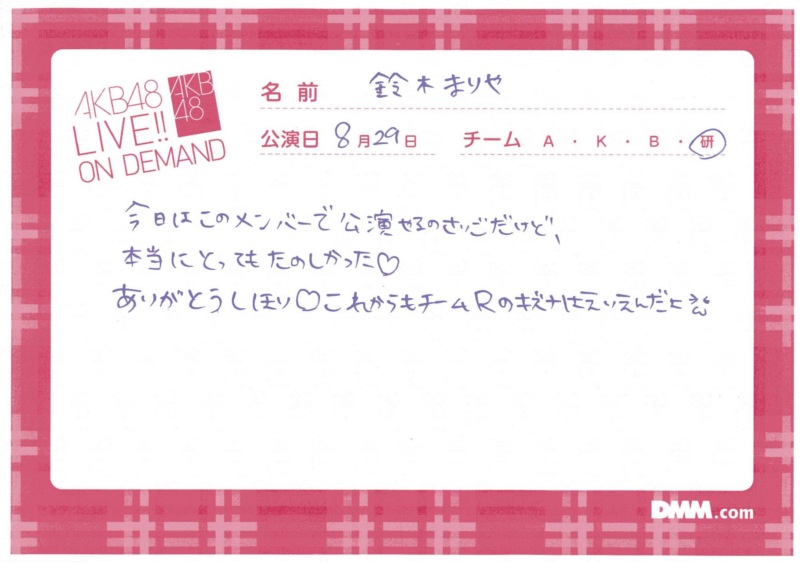 AKB48
LIVE!!
ON DEMAND
AKB
48
名前 鈴木まりや
公演日 8月29日 チーム A・K・B・研
今日はこのメンバーで公演やるのさいごだけど、
本当にとってもたのしかった♡
ありがとうしほり♡これからもチームRのキズナはえいえんだよ
DMM.com